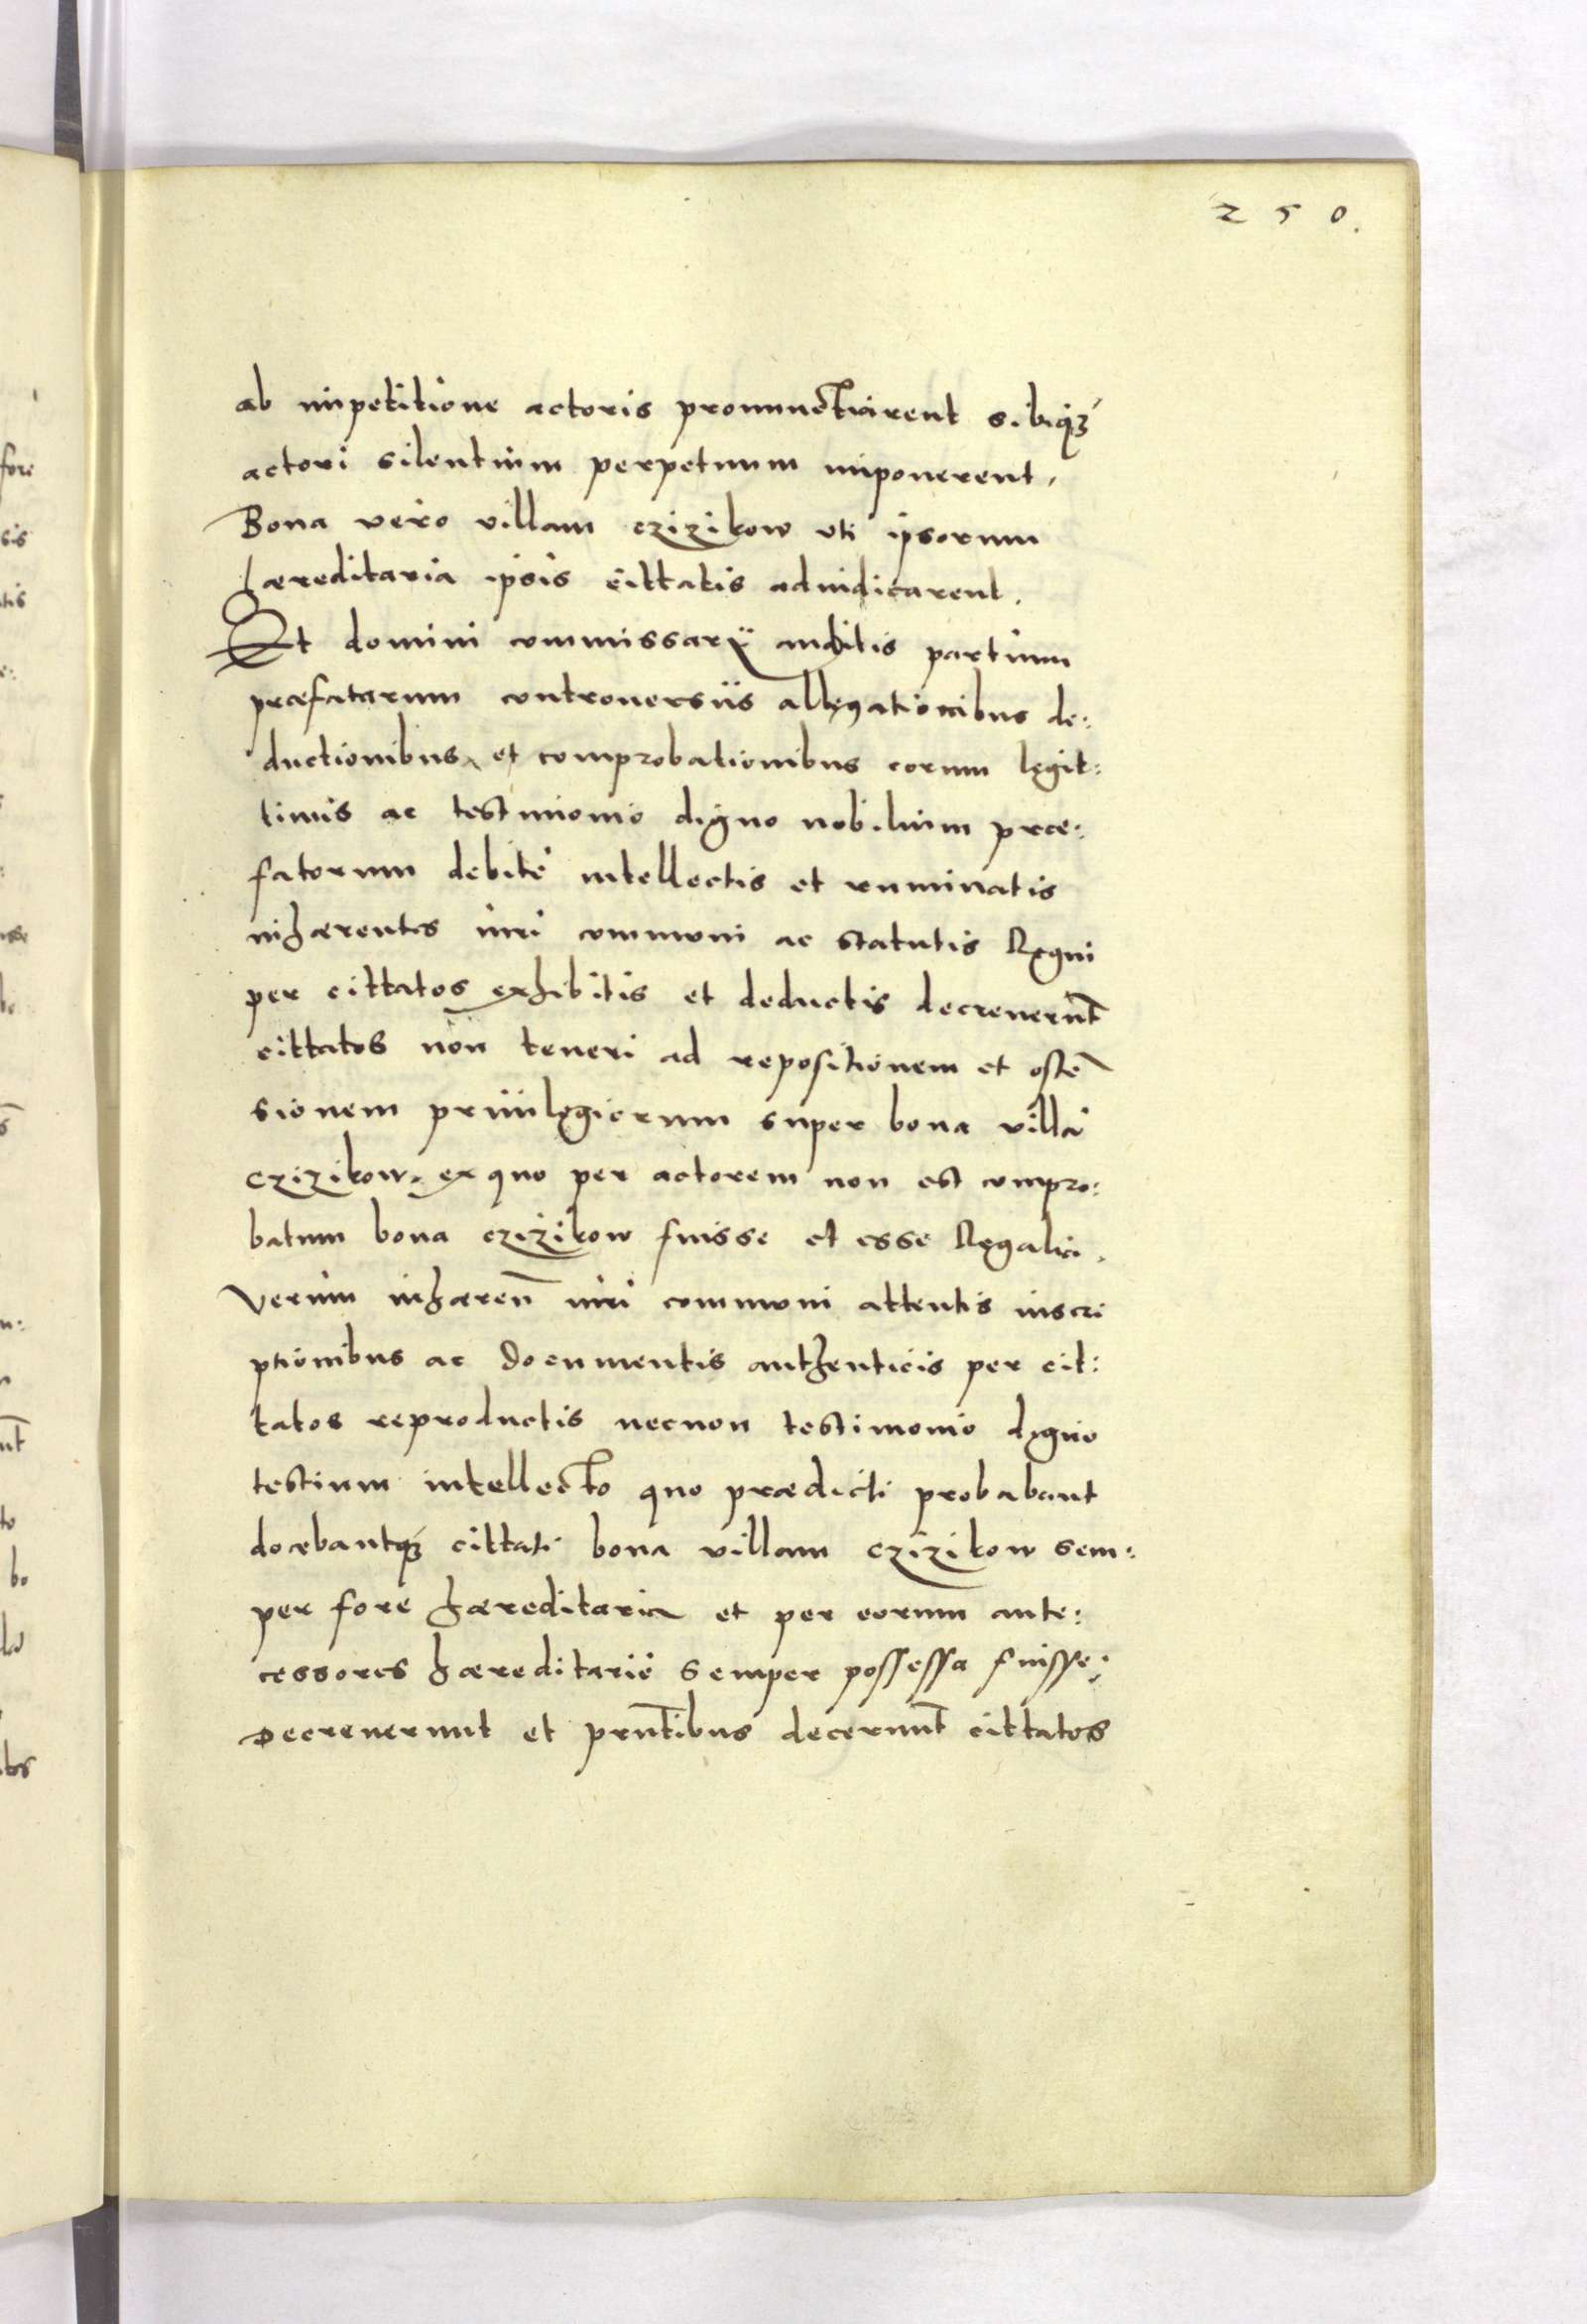 250.
ab impetitione actoris pronunctiarent sibiq́ꝫ
actori silentium perpetuum imponerent,
Bona vero villam czizikow vti ipsorum
hæreditaria ipsis cittatis adiudicarent.
Et domini commissarij auditis partium
præfatarum controuersiis allegationibus de:
ductionibus et comprobationibus eorum legit:
timis ac testimonio digno nobilium præ:
fatorum debite intellectis et ruminatis
inhærentes iuri communi ac statutis Regni
per cittatos exhibitis et deductis decreuerūt
cittatos non teneri ad repositionem et ostē
sionem priuilegiorum super bona villā
czizikow. ex quo per actorem non est compro:
batum bona czizikow fuisse et esse Regalia.
Verum inhæreñ iuri communi attentis inscri
ptionibus ac documentis authenticis per cit:
tatos reproductis necnon testimonio digno
testium intellecto quo prædicti probabant
docebantq́ꝫ cittati bona villam czizikow sem:
per fore hæreditaria et per eorum ante:
cessores hæreditarie semper possessa fuisse:
Decreuerunt et pñtibus decernūt cittatos
fore
sis
tis
e:
be
n:
to
be